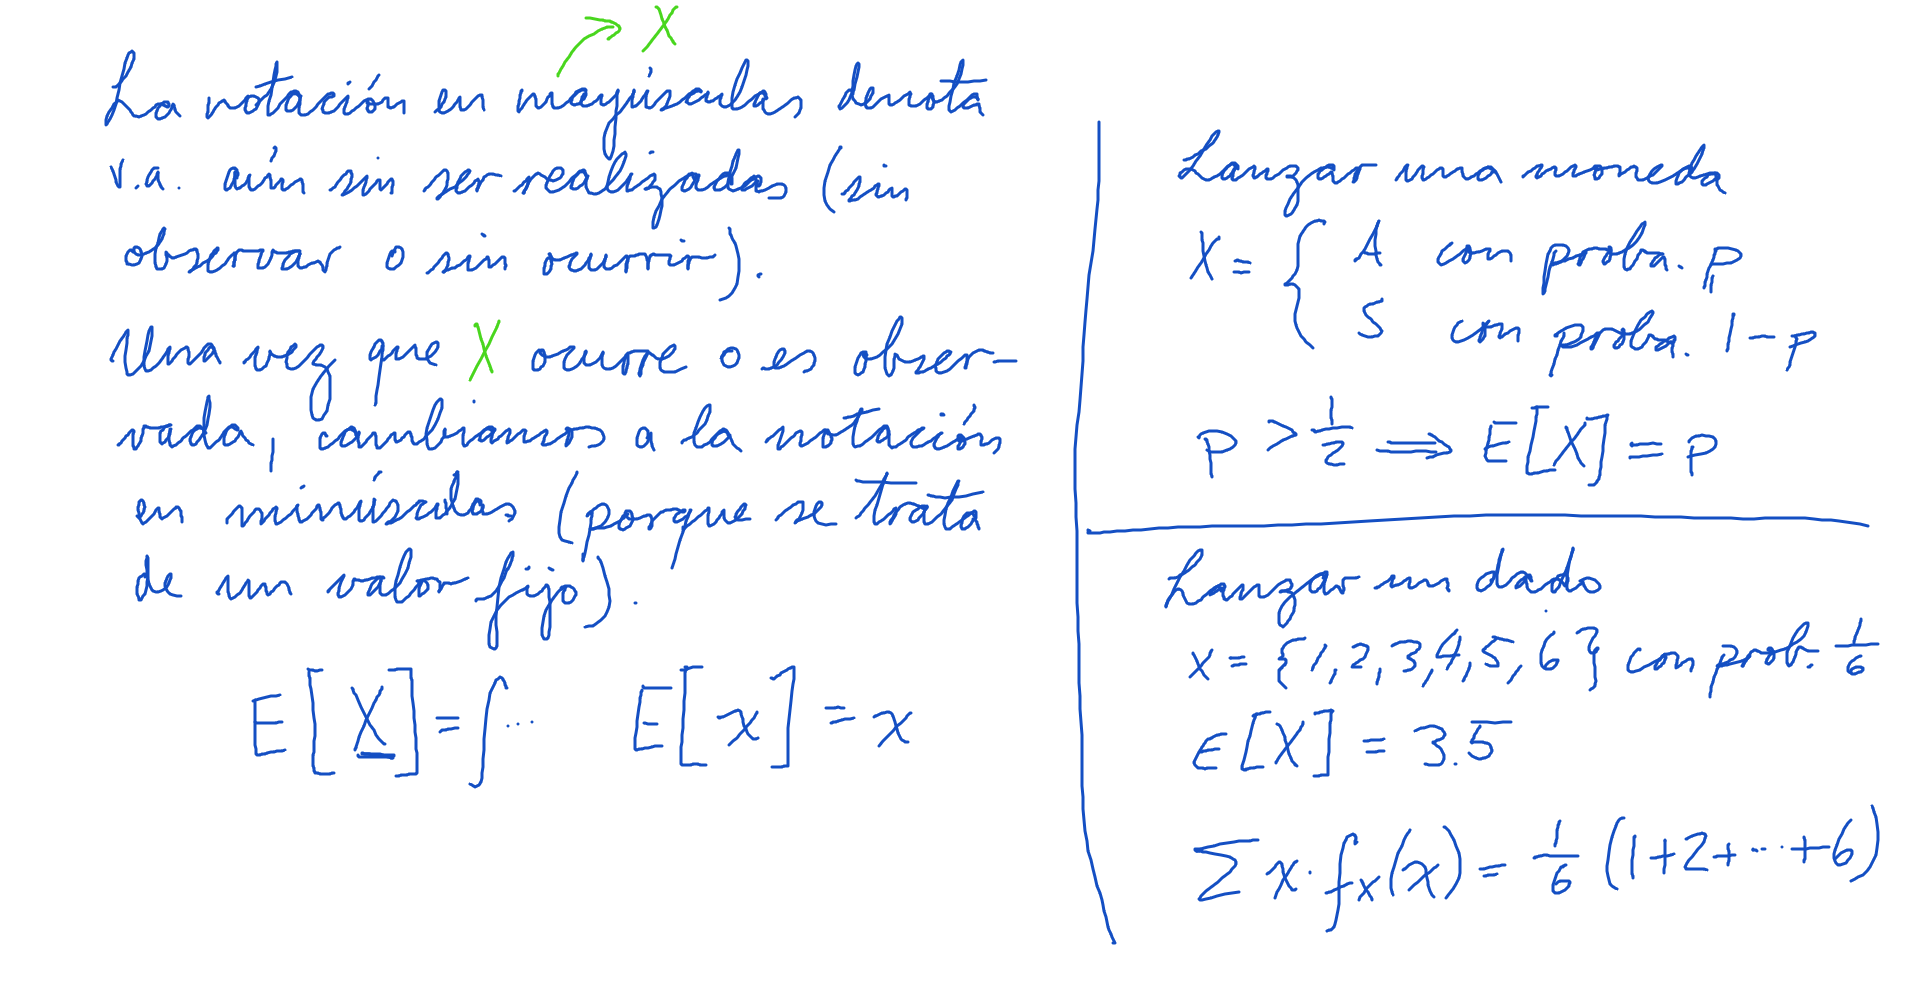 X
La notación en mayúsculas denota
v.a. aún sin ser realizadas (sin
observar o sin ocurrir).
Una vez que X ocurre o es obser-
vada, cambiamos a la notación
en minúsculas (porque se trata
de un valor fijo).
E[X] = ∫... E[x] = x
Lanzar una moneda
X = { A con proba. p
S con proba. 1-p
p > 1/2 ⟹ E[X] = p
Lanzar un dado
x = {1,2,3,4,5,6} con prob. 1/6
E[X] = 3.5
∑ x · fx(x) = 1/6 (1+2+...+6)